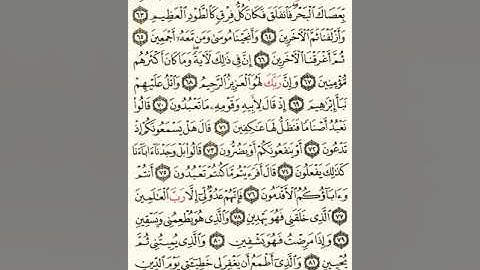 بِّعَصَاكَ ٱلۡبَحۡرَۖ فَٱنفَلَقَ فَكَانَ كُلُّ فِرۡقٖ كَٱلطَّوۡدِ ٱلۡعَظِيمِ ٦٣
وَأَزۡلَفۡنَا ثَمَّ ٱلۡأٓخَرِينَ ٦٤ وَأَنجَيۡنَا مُوسَىٰ وَمَن مَّعَهُۥٓ أَجۡمَعِينَ ٦٥
ثُمَّ أَغۡرَقۡنَا ٱلۡأٓخَرِينَ ٦٦ إِنَّ فِي ذَٰلِكَ لَأٓيَةٗۖ وَمَا كَانَ أَكۡثَرُهُم
مُّؤۡمِنِينَ ٦٧ وَإِنَّ رَبَّكَ لَهُوَ ٱلۡعَزِيزُ ٱلرَّحِيمُ ٦٨ وَٱتۡلُ عَلَيۡهِمۡ
نَبَأَ إِبۡرَٰهِيمَ ٦٩ إِذۡ قَالَ لِأَبِيهِ وَقَوۡمِهِۦ مَا تَعۡبُدُونَ ٧٠ قَالُواْ
نَعۡبُدُ أَصۡنَامٗا فَنَظَلُّ لَهَا عَٰكِفِينَ ٧١ قَالَ هَلۡ يَسۡمَعُونَكُمۡ إِذۡ
تَدۡعُونَ ٧٢ أَوۡ يَنفَعُونَكُمۡ أَوۡ يَضُرُّونَ ٧٣ قَالُواْ بَلۡ وَجَدۡنَآ ءَابَآءَنَا
كَذَٰلِكَ يَفۡعَلُونَ ٧٤ قَالَ أَفَرَءَيۡتُم مَّا كُنتُمۡ تَعۡبُدُونَ ٧٥ أَنتُمۡ
وَءَابَآؤُكُمُ ٱلۡأَقۡدَمُونَ ٧٦ فَإِنَّهُمۡ عَدُوّٞ لِّيٓ إِلَّا رَبَّ ٱلۡعَٰلَمِينَ
٧٧ ٱلَّذِي خَلَقَنِي فَهُوَ يَهۡدِينِ ٧٨ وَٱلَّذِي هُوَ يُطۡعِمُنِي وَيَسۡقِينِ
٧٩ وَإِذَا مَرِضۡتُ فَهُوَ يَشۡفِينِ ٨٠ وَٱلَّذِي يُمِيتُنِي ثُمَّ
يُحۡيِينِ ٨١ وَٱلَّذِيٓ أَطۡمَعُ أَن يَغۡفِرَ لِي خَطِيٓـَٔتِي يَوۡمَ ٱلدِّينِ